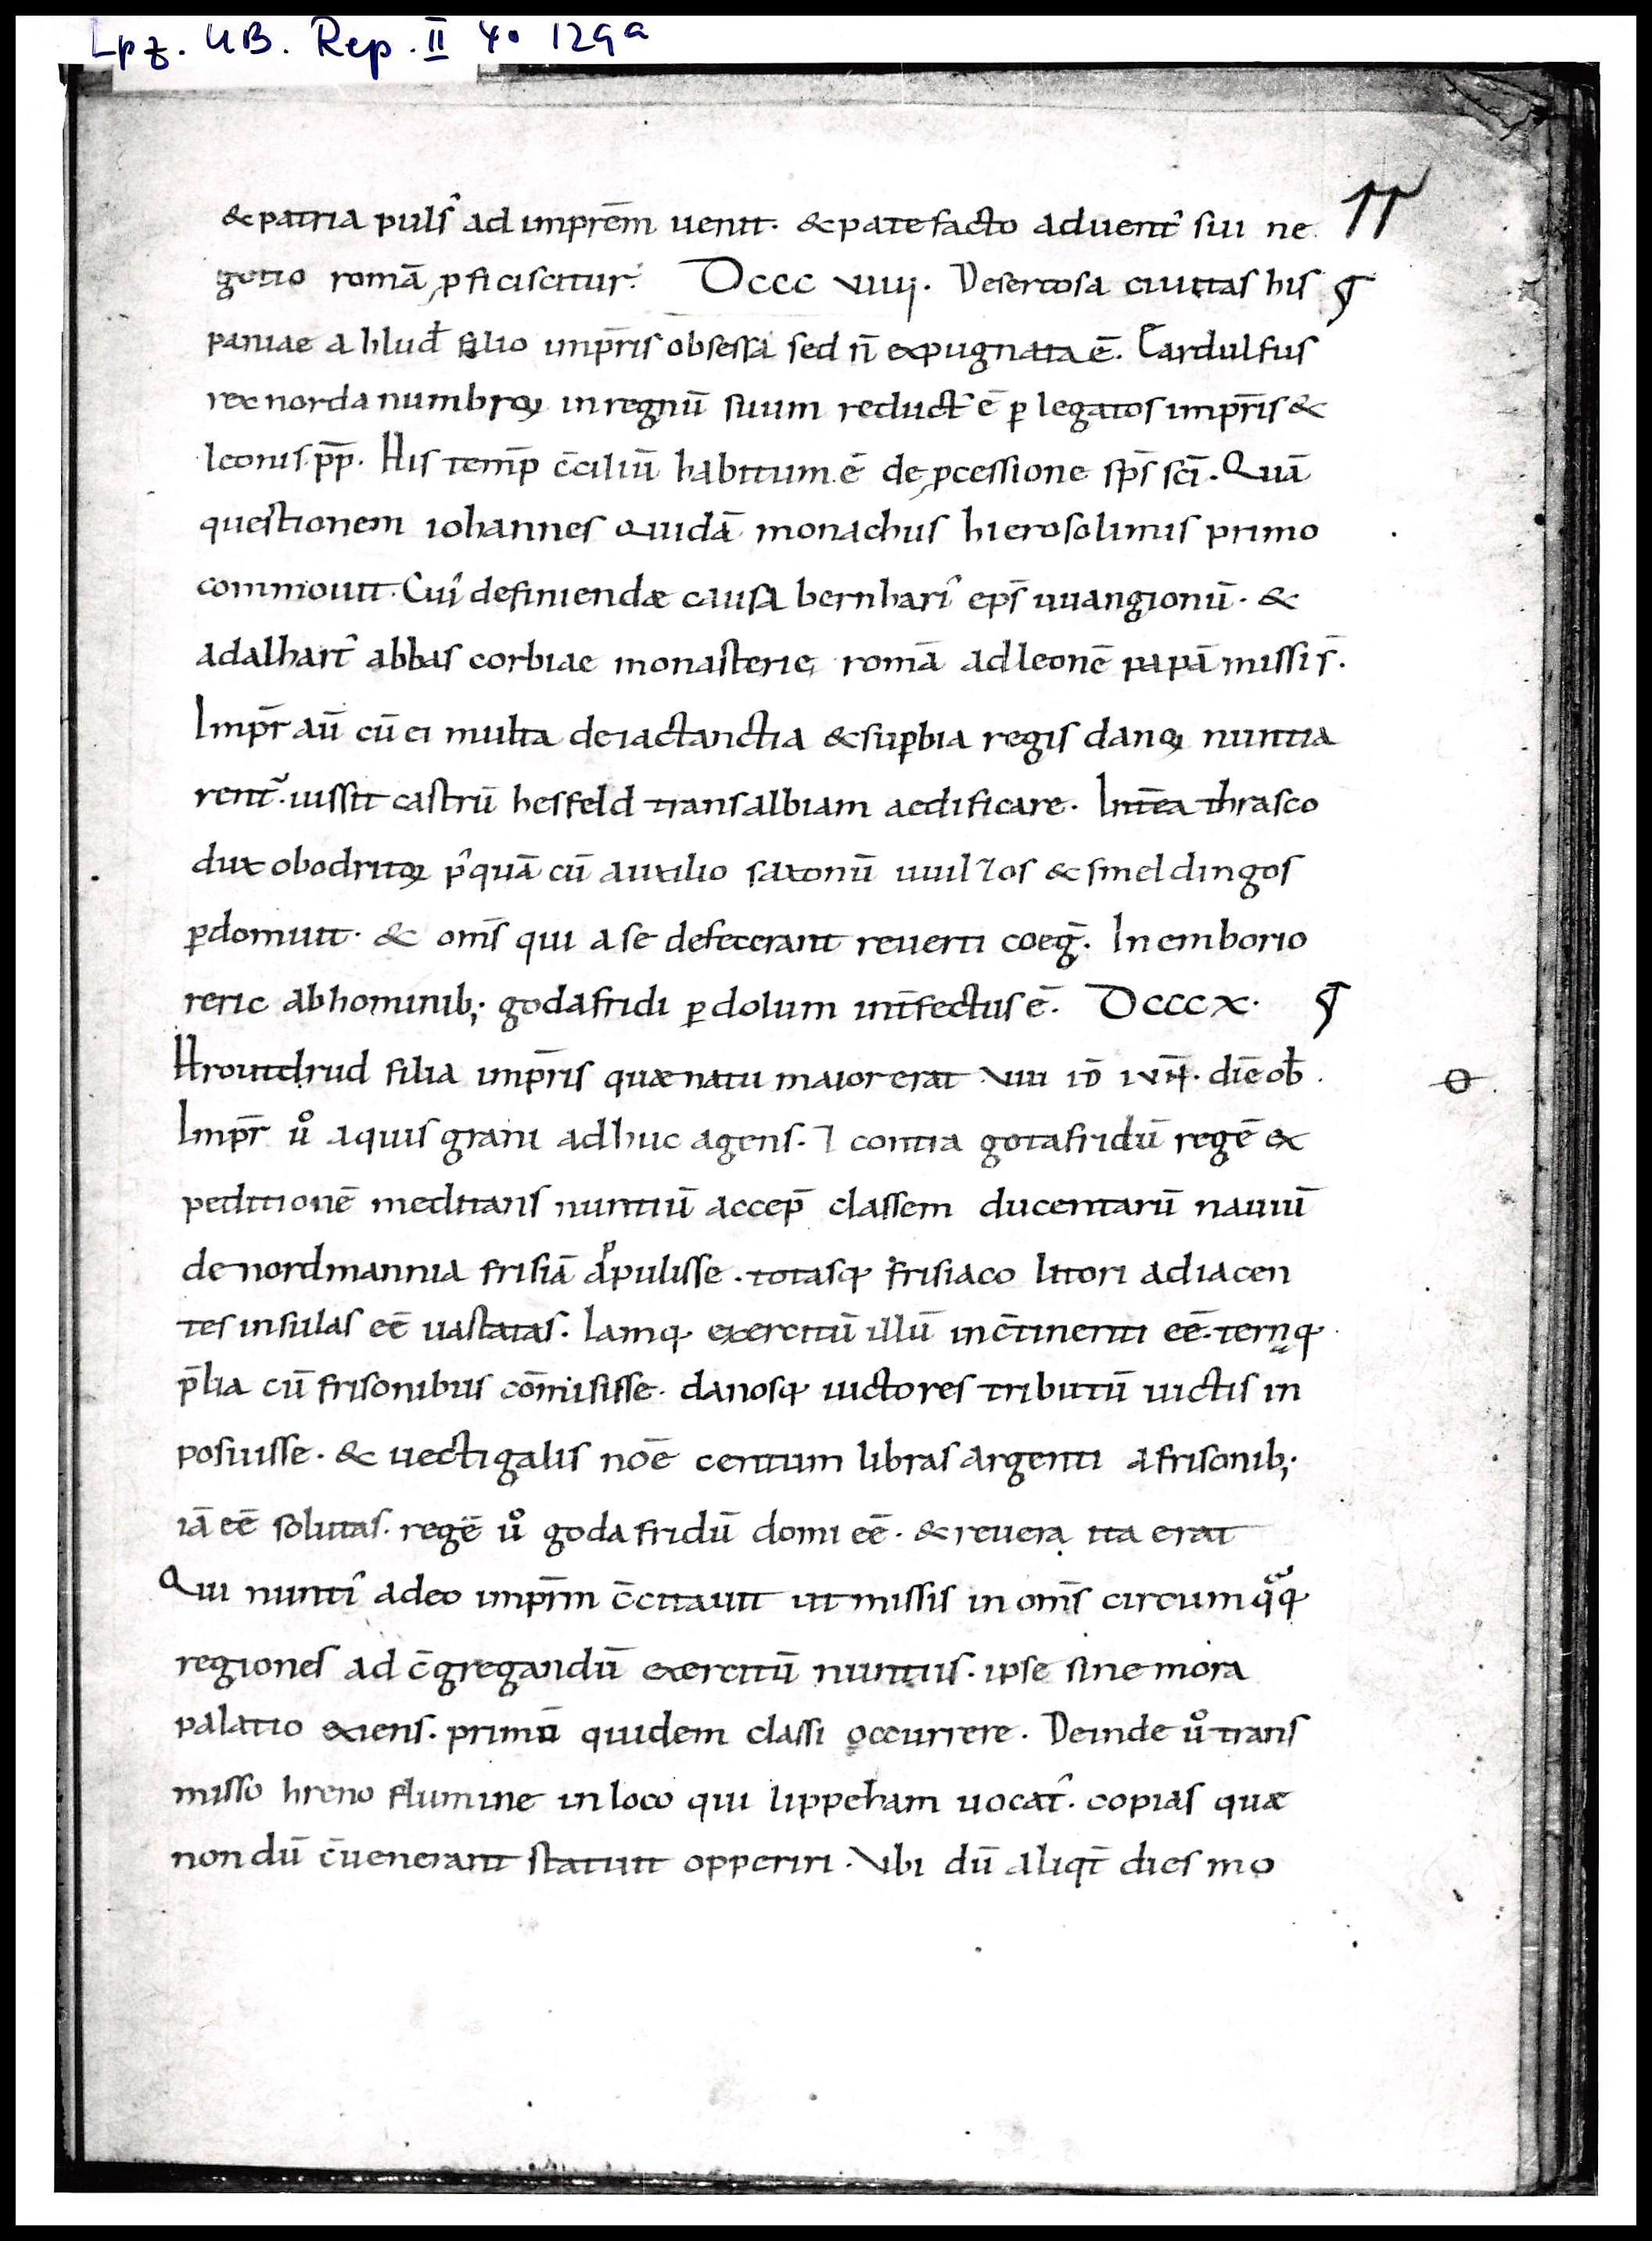 Lpz. UB. Rep. II 4° 129a
& patria pulsˀ ad imp̄rem uenit. & patefacto aduentˀ sui ne
11
gotio romā ꝓficiscitur. DCCC VIIII. Desertosa ciuitas his
paniae a hlud̄ filio imp̄ris obsessa sed n̄ expugnata ē. Eardulfus
rex nordanumbroꝝ in regnū suum reductˀ ē ꝑ legatos imp̄ris &
leonis p̄p̄. His temp̄ c̄ciliū habitum ē de ꝓcessione sp̄s sc̄i. Quā
questionem iohannes quidā monachus hierosolimis primo
commouit. Cuiˀ definiendæ causa bernhariˀ ep̄s uuangionū. &
adalhartˀ abbas corbiae monasterie romā ad leonē papā missi s̄.
Imp̄r aū cū ei multa de iactanctia & suꝑbia regis danoꝝ nuntia
rent᷑. iussit castrū hesfeld trans albiam aedificare. Int̄ea thrasco
dux obodritoꝝ pˀquā cū auxilio saxonū uuilzos & smeldingos
ꝑdomuit. & om̄s qui a se defecerant reuerti coeḡ. In emborio
reric ab hominib; godafridi ꝑ dolum int̄fectus ē. DCCC X.
Hroutdrud filia imp̄ris quæ natu maior erat VIII ID̄ IVN̄. diē ob̄.
Imp̄r uͦ aquis grani adhuc agens. ⁊ contra gotafridū regē ex
peditionē meditans nuntiū accep̄ classem ducentarū nauiū
de nordmannia frisiā aᵖpulisse. totasq; frisiaco litori adiacen
tes insulas eē uastatas. Iamq; exercitū illū in c̄tinenti eē. ternaq;
p̄lia cū frisonibus cōmisisse. danosq; uictores tributū uictis in
posuisse. & uectigalis noē centum libras argenti a frisonib;
iā eē solutas. regē uͦ godafridū domi eē. & reuera ita erat
Qui nuntiˀ adeo imp̄rm c̄citauit ut missis in om̄s circumqᵃq;
regiones ad c̄gregandū exercitū nuntiis. ipse sine mora
palatio exiens. primū quidem classi occurrere. Deinde uͦ trans
misso hreno flumine in loco qui lippeham uocat᷑. copias quæ
nondū c̄uenerant statuit opperiri. Vbi dū aliqt̄ dies mo